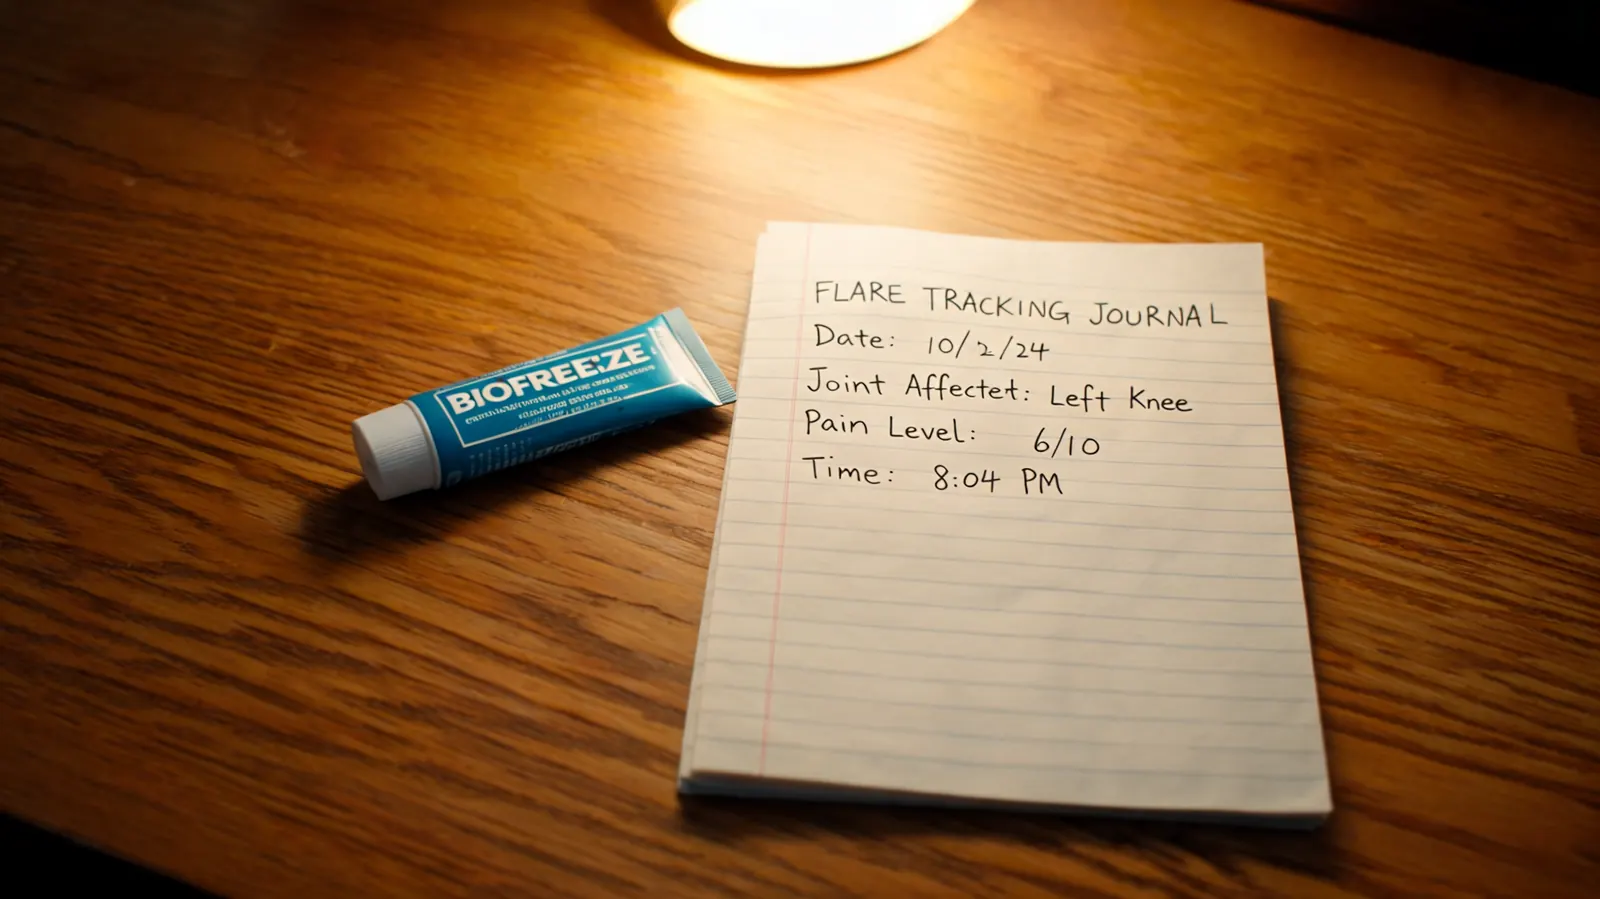 BIOFREEZE
FLARE TRACKING JOURNAL
Date: 10/2/24
Joint Affectet: Left Knee
Pain Level: 6/10
Time: 8:04 PM